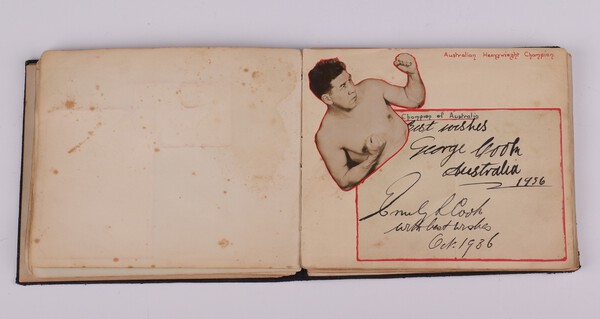 Australian Heavyweight Champion
Champion of Australia
Best wishes
George Cook
Australia
1936
Emily L Cook
with best wishes
Oct. 1936